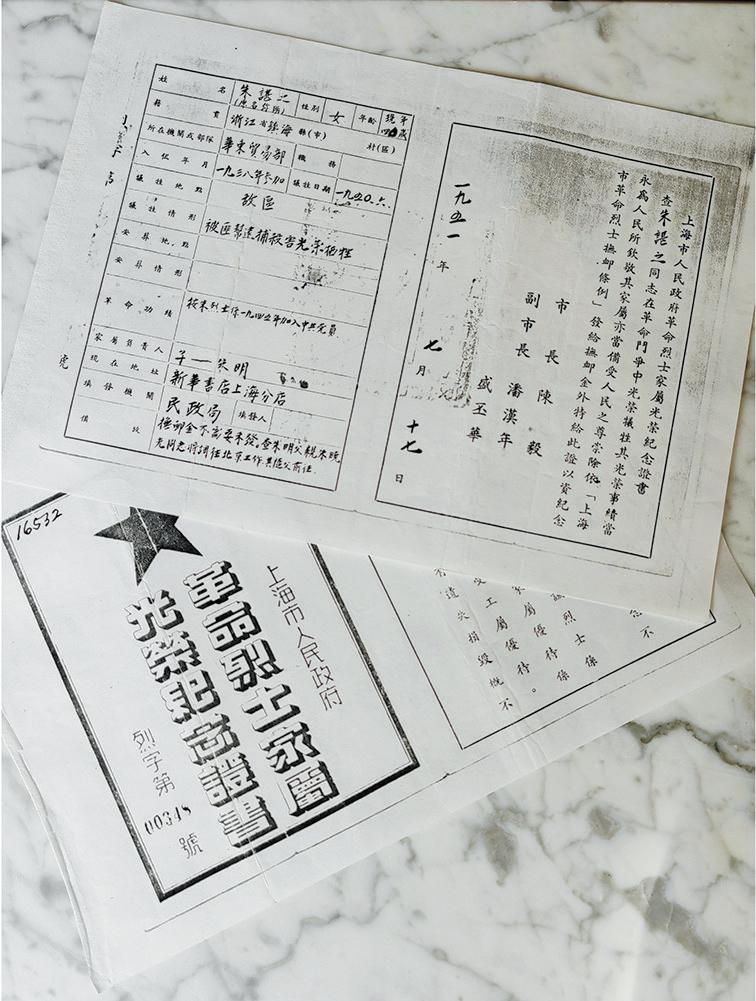 姓名 朱諶之 性別 女 年齡
籍貫 浙江省鎮海縣(市) 村(區)
所在機關或部隊 華東貿易部 職務
入伍年月 一九三八年參加 犧牲日期 一九五〇.六.
犧牲地點 敌區
犧牲情形 被匪幫逮捕殺害光荣犧牲
安葬地點
安葬情形
革命功績 按朱烈士係一九四五年加入中共党員
家屬負責人 子——朱明
現在地址 新華書店上海分店
填發機關 民政局 填發人
備攷 撫卹金不需要未發,查朱明父親朱曉
光同志將調往北京工作,其隨父前往.
號
上海市人民政府革命烈士家屬光榮紀念證書
查朱諶之同志在革命鬥爭中光榮犧牲其光榮事績當
永為人民所欽敬其家屬亦當備受人民之尊崇除依「上海
市革命烈士撫卹條例」發給撫卹金外特給此證以資紀念
市長 陳毅
副市長 潘漢年
盛丕華
一九五一年七月十七日
16532
上海市人民政府
革命烈士家屬
光榮紀念證書
烈字第00348號
念不
烈士係
屬優待係
工屬優待。
遺穴損毀概不